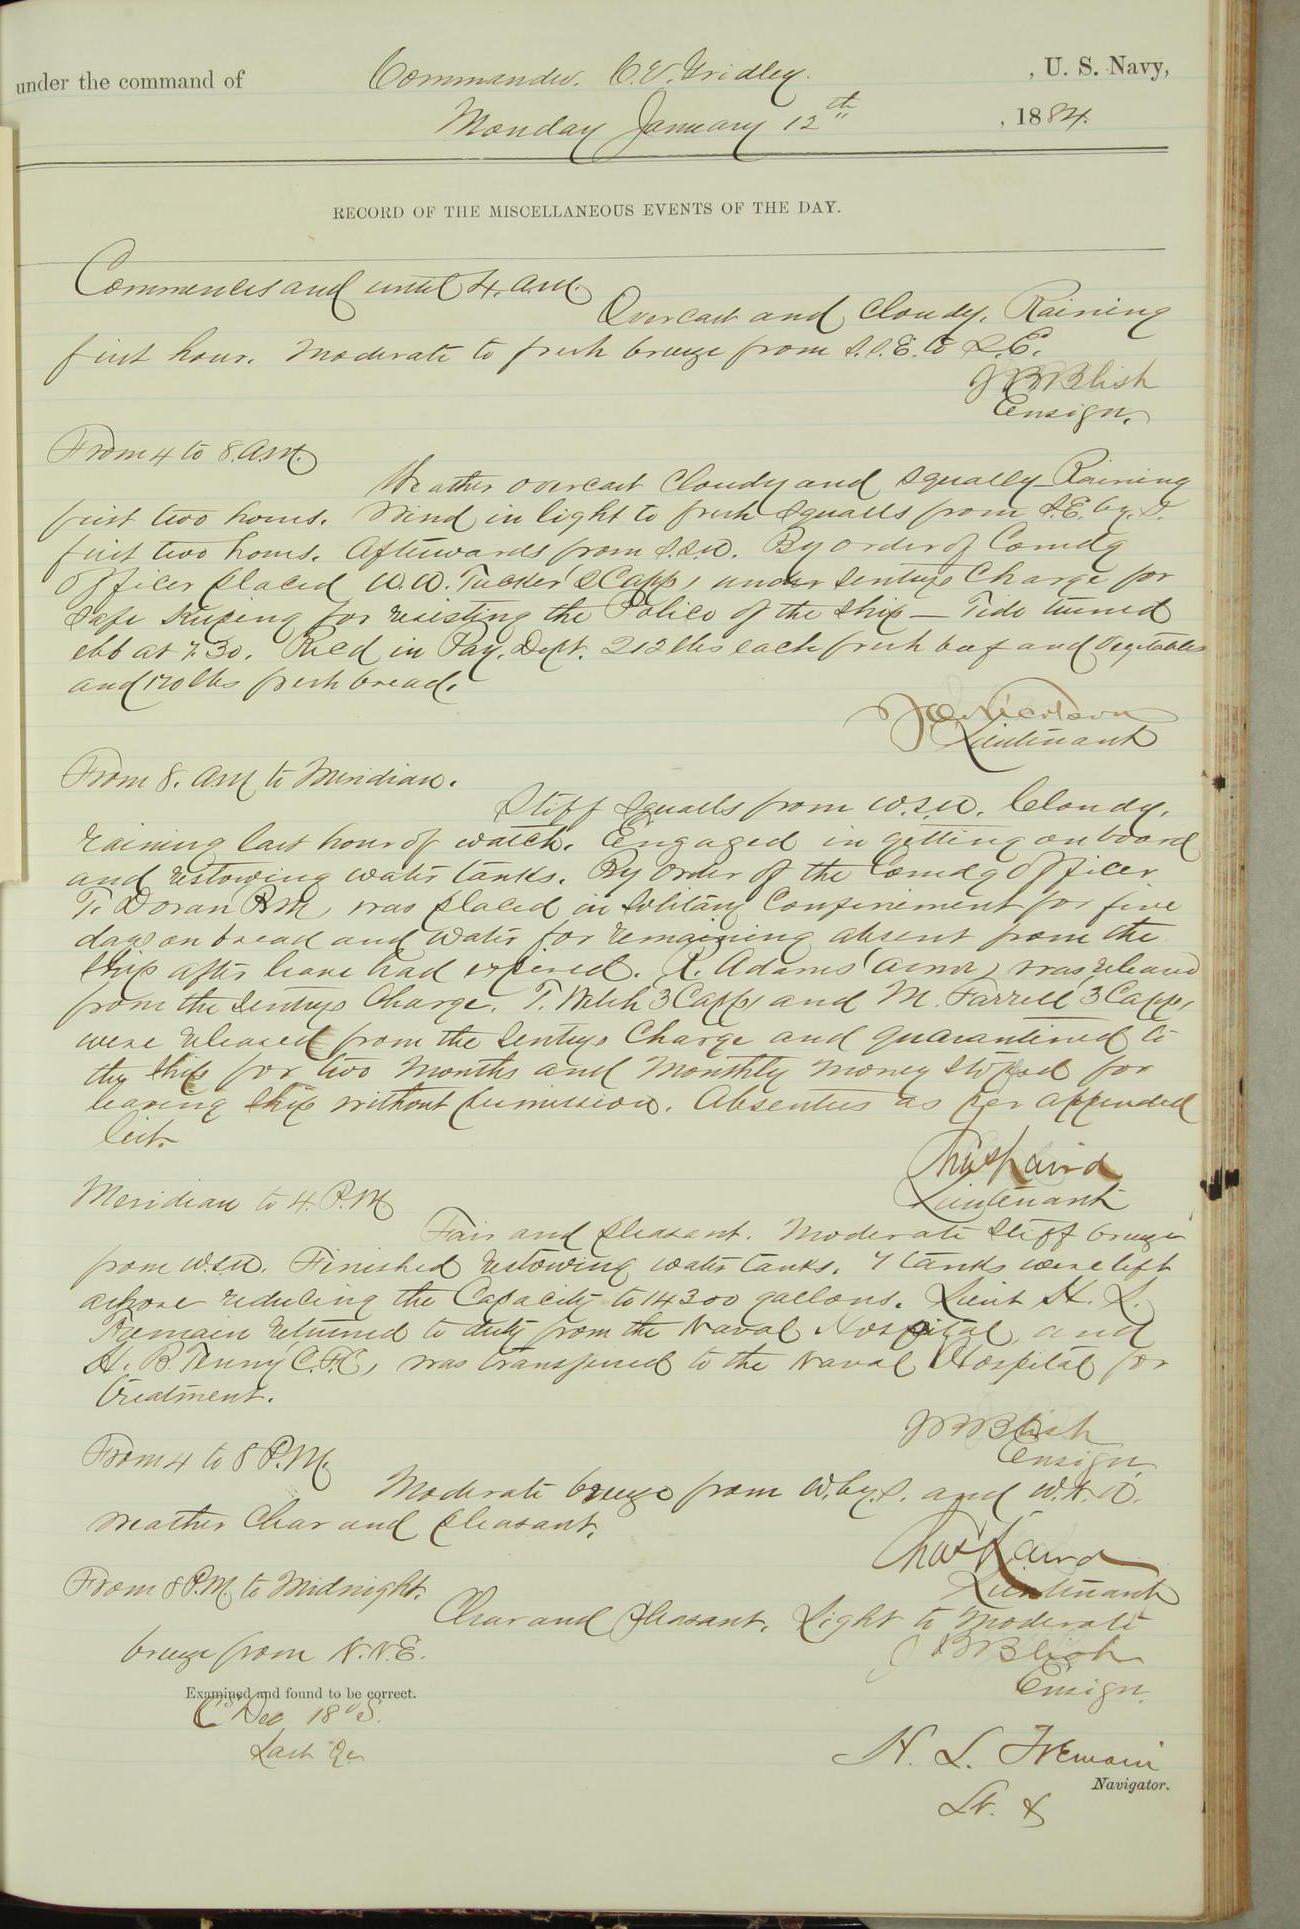 under the command of Commander. C. V. Gridley. , U. S. Navy,
Monday January 12th , 1884.
RECORD OF THE MISCELLANEOUS EVENTS OF THE DAY.
Commences and until 4. a.m.
Overcast and cloudy. Raining
first hour. Moderate to fresh breeze from S.S.E. to S.E.
J B Blish
Ensign.
From 4 to 8. a.m.
Weather overcast cloudy and squally Raining
first two hours. Wind in light to fresh squalls from S.E. by. S.
first two hours. Afterwards from S.S.W. By order of Comdg
Officer placed W. W. Tucker (S Capp) under sentrys Charge for
safe keeping for resisting the Police of the ship — Tide turned
ebb at 7.30. Rec'd in Pay. Dept. 212 lbs each fresh beef and vegetables
and 170 lbs fresh bread.
Lieutenant
From 8. AM to Meridian.
Stiff squalls from W.S.W. Cloudy.
raining last hour of watch. Engaged in getting on board
and restowing water tanks. By order of the Comdg Officer
T. Doran (B M) was placed in Solitary Confinement for five
days on bread and water for remaining absent from the
ship after leave had expired. R. Adams was released
from the sentrys Charge. T. Welch (3 Capp) and M. Farrell (3 Capp)
were released from the sentrys Charge and quarantined to
the ship for two Months and Monthly money stopped for
leaving ship without permission. Absentees as per appended
list.
Chas Laird
Lieutenant
Meridian to 4. P.M
Fair and pleasant. Moderate stiff breeze
from W.S.W. Finished restowing water tanks. 7 tanks were left
ashore reducing the Capacity to 14300 gallons. Lieut H. L.
Tremain returned to duty from the Naval Hospital, and
H. B. Tenny (C.F.C), was transferred to the Naval Hospital for
treatment.
J B Blish
Ensign
From 4 to 8 P.M.
Moderate breeze from W. by. S. and W.N.W.
weather Clear and pleasant.
Chas Laird
Lieutenant
From 8 P.M. to Midnight.
Clear and pleasant. Light to moderate
breeze from N.N.E.
J B Blish
Ensign.
Examined and found to be correct.
Dec 18° S.
Last Qr
H. L. Tremain
Navigator.
Lt. &